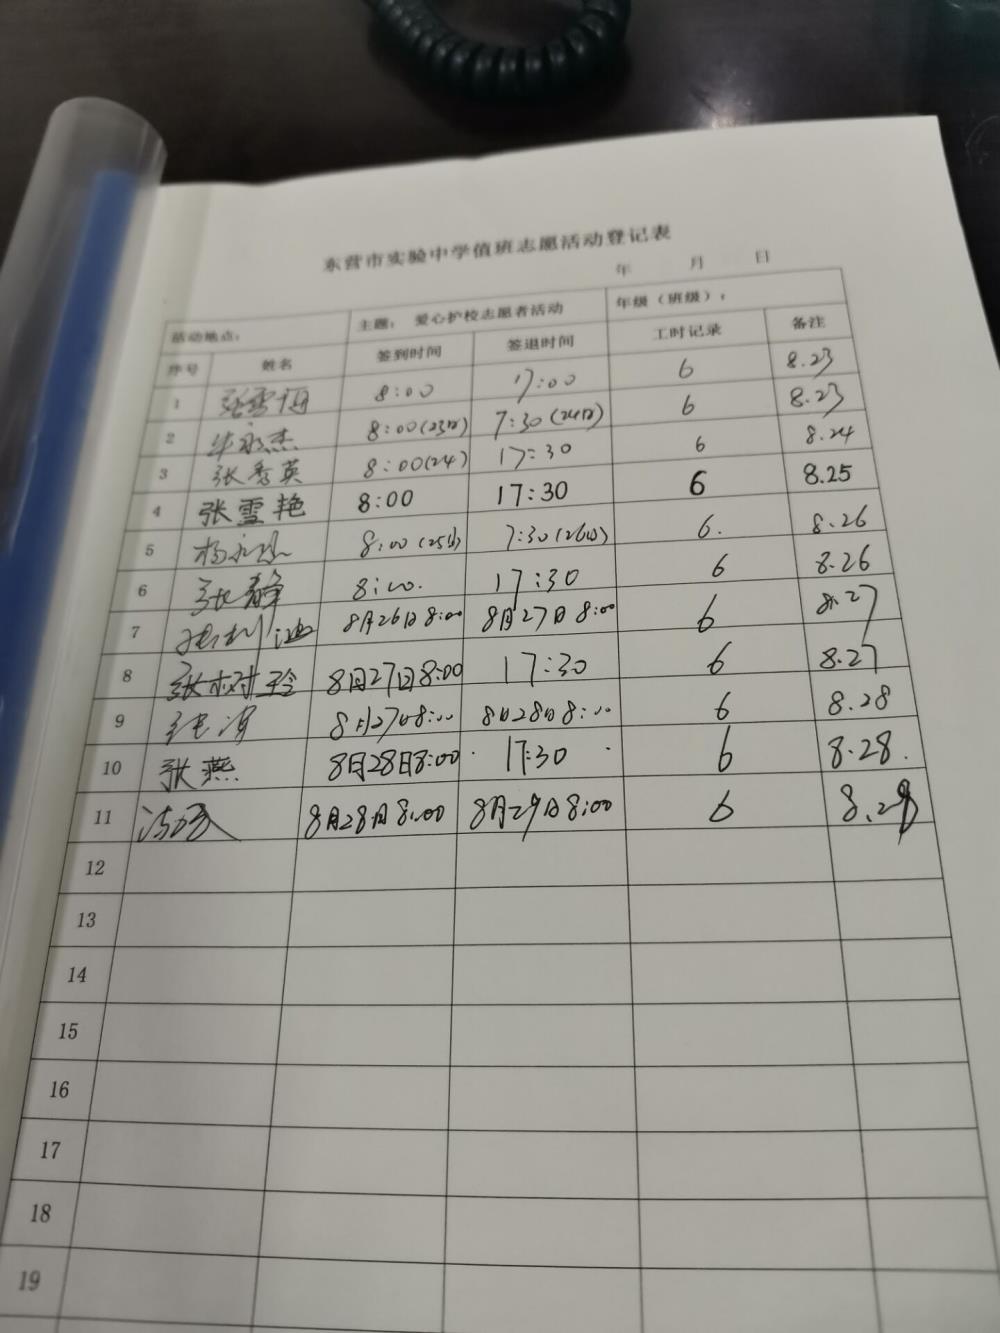 东营市实验中学值班志愿活动登记表
年 月 日
活动地点： 主题： 爱心护校志愿者活动 年级（班级）：
序号 姓名 签到时间 签退时间 工时记录 备注
1 8:00 17:00 6 8.23
2 8:00(23日) 7:30(24日) 6 8.23
3 张秀英 8:00(24) 17:30 6 8.24
4 张雪艳 8:00 17:30 6 8.25
5 8:00(25日) 7:30(26日) 6. 8.26
6 张静 8:00. 17:30 6 8.26
7 8月26日8:00 8月27日 8:00 6 8.27
8 张树玲 8月27日8:00 17:30 6 8.27
9 8月27日8:00 8月28日8:00 6 8.28
10 张燕 8月28日8:00 17:30 6 8.28.
11 8月28日8:00 8月29日8:00 6
12
13
14
15
16
17
18
19